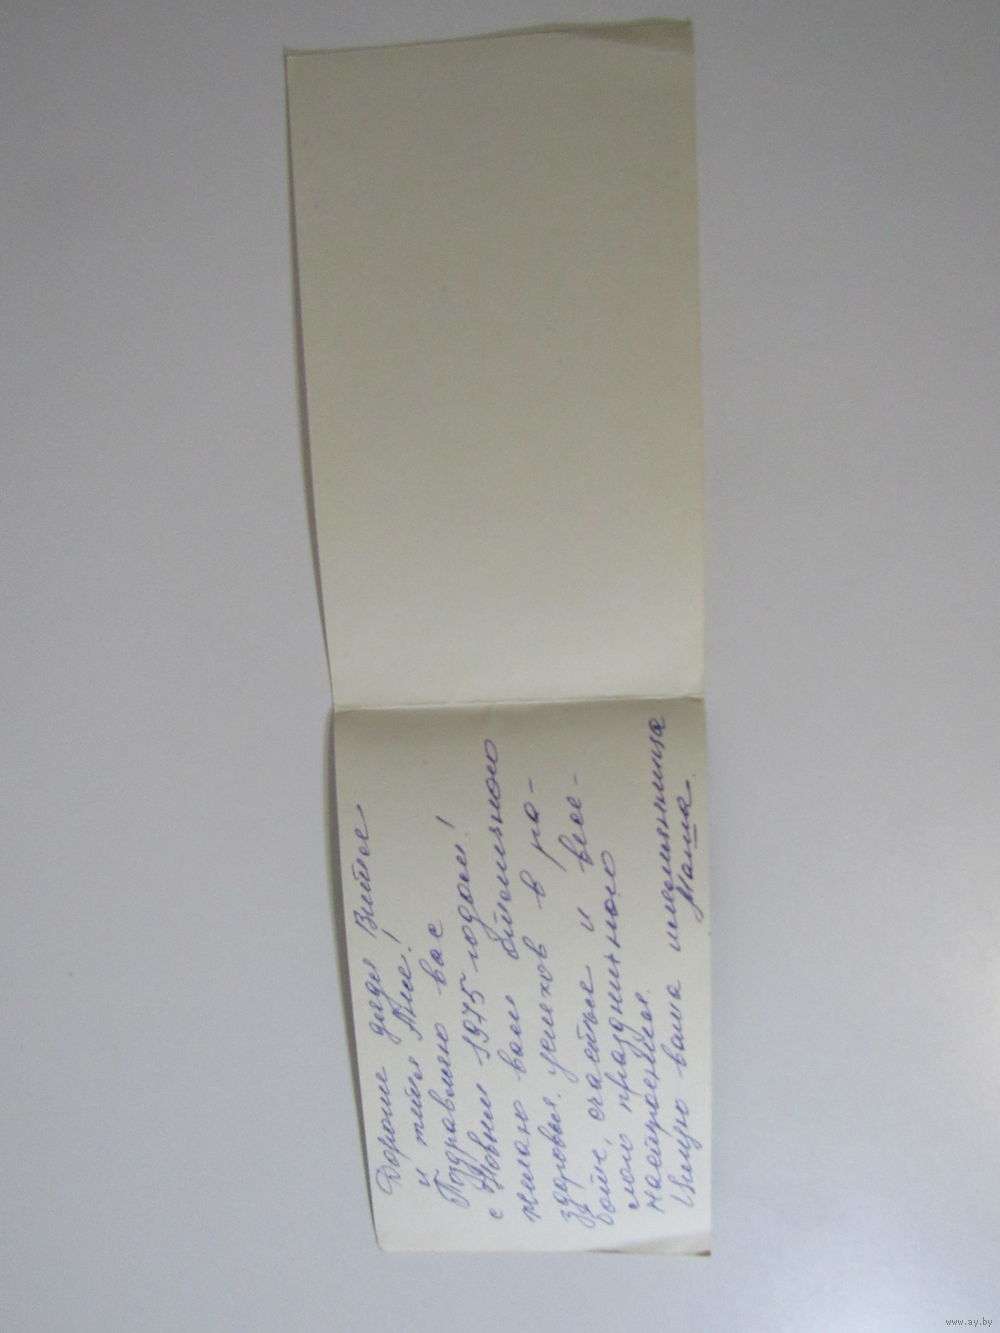 Дорогие дядя Витя
и тётя Аля!
Поздравляю вас
с Новым 1975 годом!
желаю вам отличного
здоровья, успехов в ра-
боте, счастья и весе-
лого праздничного
настроения.
Целую ваша племянница
Маша.
www.ay.by